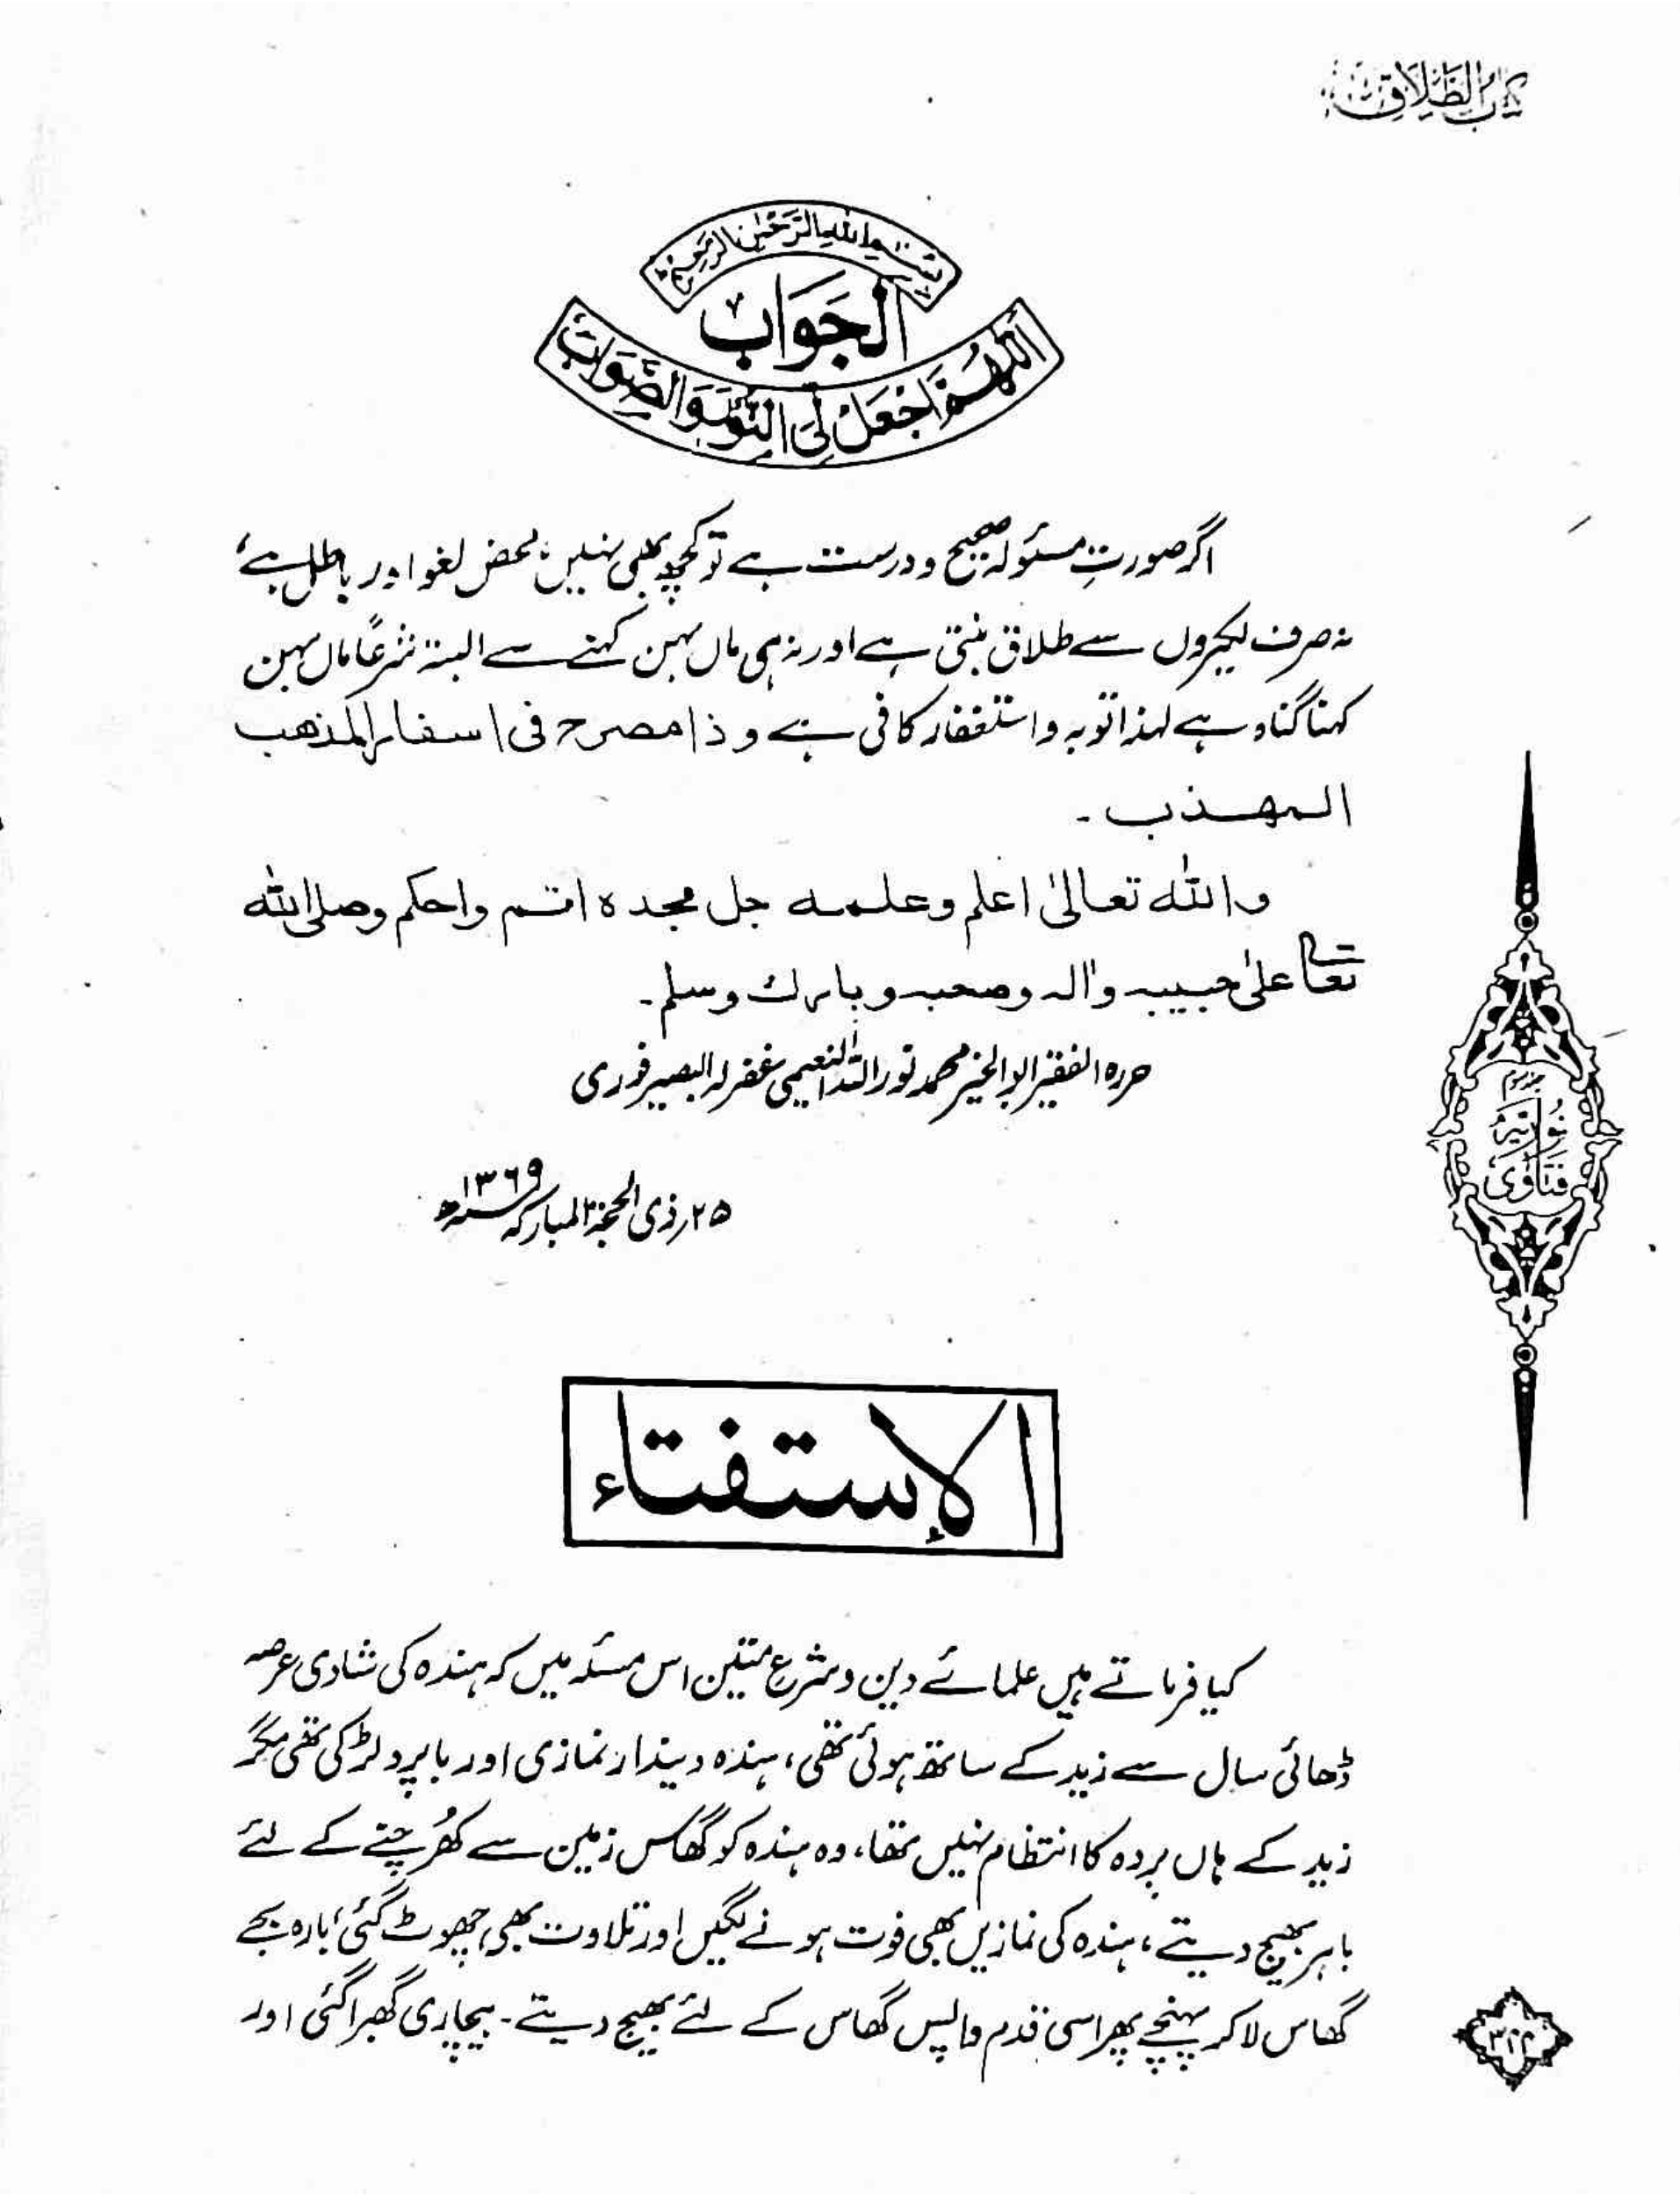 کتاب الطلاق
بسم الله الرحمٰن الرحیم
الجَوَابُ
اللهم اجعل لی النور والصواب
اگر صورتِ مسئولہ صحیح و درست ہے تو کچھ بھی نہیں، محض لغو اور باطل ہے،
نہ صرف لکیروں سے طلاق بنتی ہے اور نہ ہی ماں بہن کہنے سے البتہ شرعًا ماں بہن
کہنا گناہ ہے لہذا توبہ و استغفار کافی ہے وذا مصرح فی اسفار المذهب
المهذب۔
والله تعالیٰ اعلم وعلمه جل مجده اتم واحکم وصلی الله
تعالیٰ علیٰ حبیبہ واٰلہ وصحبہ وبارك وسلم۔
حررہ الفقیر ابوالخیر محمد نور اللہ النعیمی غفرلہ البصیرفوری
۲۵؍ ذی الحجۃ المبارکہ ۱۳۶۹ھ
جلد سوم
نوریہ
فتاویٰ
الإستفتاء
کیا فرماتے ہیں علمائے دین و شرعِ متین اس مسئلہ میں کہ ہندہ کی شادی عرصہ
ڈھائی سال سے زید کے ساتھ ہوئی تھی، ہندہ دیندار نمازی اور باپرد لڑکی تھی مگر
زید کے ہاں پردہ کا انتظام نہیں تھا، وہ ہندہ کو گھاس زمین سے کھُرچنے کے لئے
باہر بھیج دیتے، ہندہ کی نمازیں بھی فوت ہونے لگیں اور تلاوت بھی چھوٹ گئی، بارہ بجے
گھاس لا کر پہنچے پھر اسی قدم واپس گھاس کے لئے بھیج دیتے۔ بیچاری گھبرا گئی اور
۳۲۴